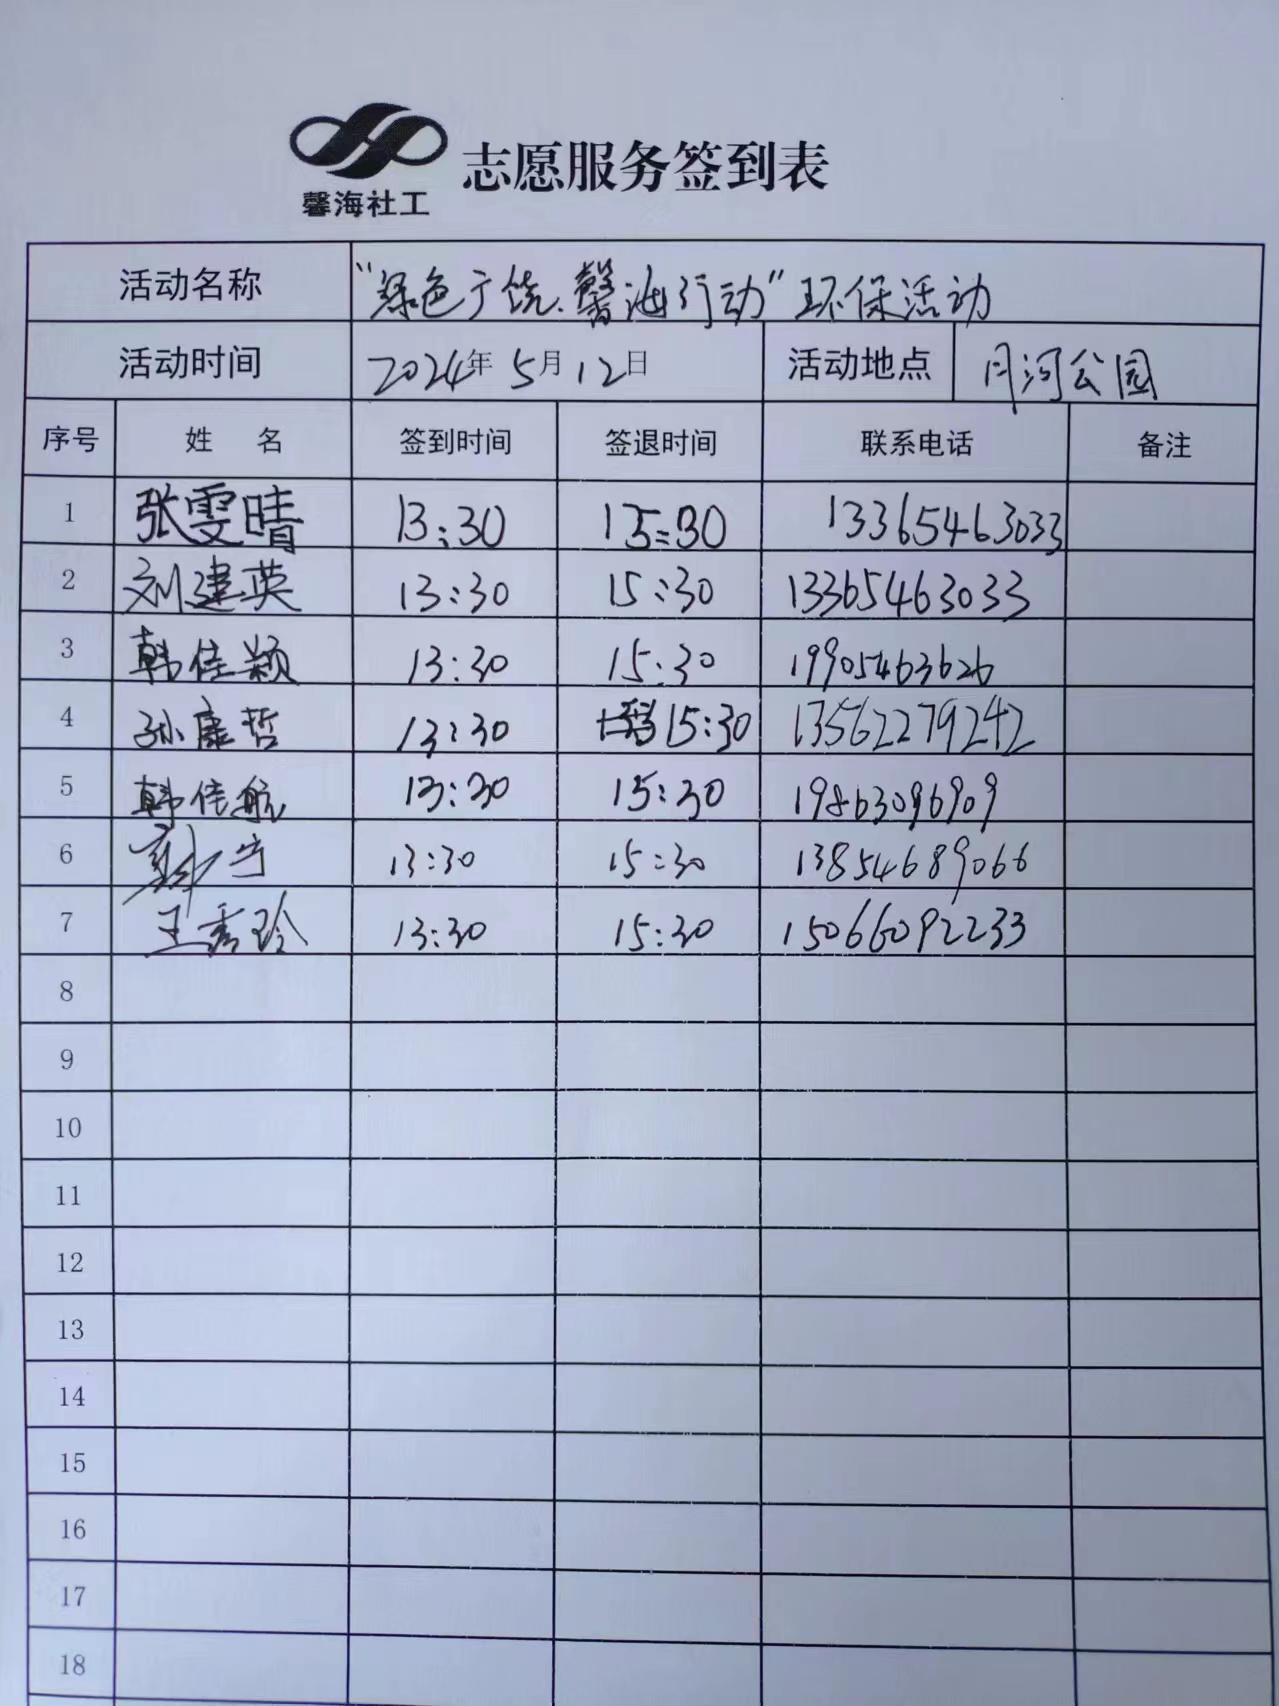 馨海社工
志愿服务签到表
活动名称 “绿色广饶、馨海行动”环保活动
活动时间 2024年5月12日 活动地点 月河公园
序号 姓 名 签到时间 签退时间 联系电话 备注
1 张雯晴 13:30 15:30 13365463033
2 刘建英 13:30 15:30 13365463033
3 韩佳颖 13:30 15:30 19905463626
4 孙康哲 13:30 15:30 13562279242
5 韩佳航 13:30 15:30 19863096909
6 宁 13:30 15:30 13854689066
7 王秀玲 13:30 15:30 15066092233
8
9
10
11
12
13
14
15
16
17
18